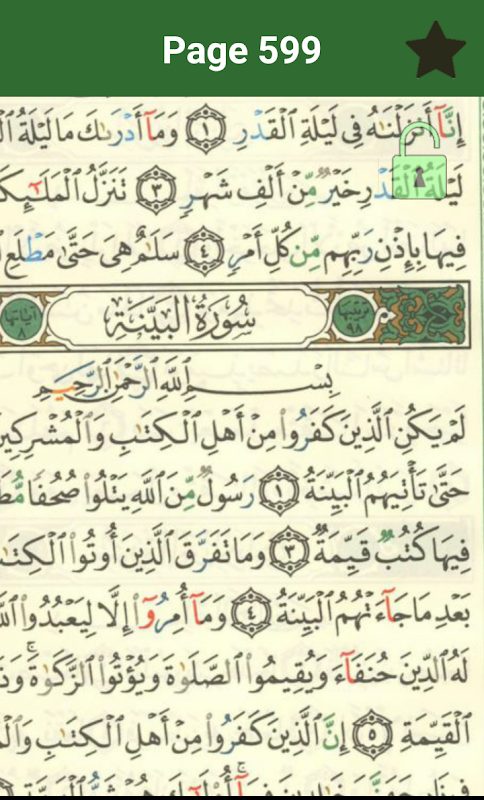 Page 599
إِنَّآ أَنزَلْنَٰهُ فِى لَيْلَةِ ٱلْقَدْرِ ١ وَمَآ أَدْرَىٰكَ مَا لَيْلَةُ
لَيْلَةُ ٱلْقَدْرِ خَيْرٌ مِّنْ أَلْفِ شَهْرٍ ٣ تَنَزَّلُ
فِيهَا بِإِذْنِ رَبِّهِم مِّن كُلِّ أَمْرٍ ٤ سَلَٰمٌ هِىَ حَتَّىٰ مَطْلَعِ
ترتيبها ٩٨ سُورَةُ البَيِّنَةِ آياتها ٨
بِسْمِ ٱللَّهِ ٱلرَّحْمَٰنِ ٱلرَّحِيمِ
لَمْ يَكُنِ ٱلَّذِينَ كَفَرُوا۟ مِنْ أَهْلِ ٱلْكِتَٰبِ وَٱلْمُشْرِكِينَ
حَتَّىٰ تَأْتِيَهُمُ ٱلْبَيِّنَةُ ١ رَسُولٌ مِّنَ ٱللَّهِ يَتْلُوا۟ صُحُفًا
فِيهَا كُتُبٌ قَيِّمَةٌ ٣ وَمَا تَفَرَّقَ ٱلَّذِينَ أُوتُوا۟
بَعْدِ مَا جَآءَتْهُمُ ٱلْبَيِّنَةُ ٤ وَمَآ أُمِرُوٓا۟ إِلَّا لِيَعْبُدُوا۟
لَهُ ٱلدِّينَ حُنَفَآءَ وَيُقِيمُوا۟ ٱلصَّلَوٰةَ وَيُؤْتُوا۟ ٱلزَّكَوٰةَ ۚ
ٱلْقَيِّمَةِ ٥ إِنَّ ٱلَّذِينَ كَفَرُوا۟ مِنْ أَهْلِ ٱلْكِتَٰبِ